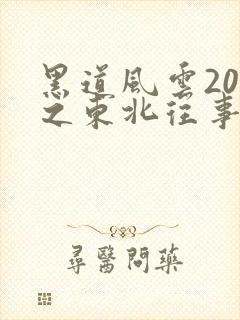 黑道風雲20
之東北往事
尋醫問藥